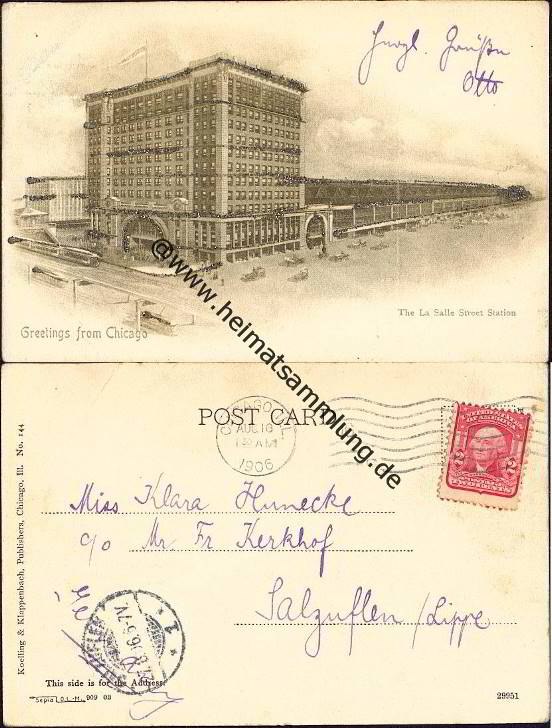 Herzl. Grüße
Otto
The La Salle Street Station
Greetings from Chicago
@www.heimatsammlung.de
POST CARD
CHICAGO
AUG 10
AM
1906
2 2
TWO CENTS
Koelling & Klappenbach, Publishers, Chicago, Ill. No. 144
Miss Klara Hunecke
c/o Mr. Fr Kerkhof
Salzuflen/Lippe
This side is for the Address.
Sepia D.L.-M. 909 03
29951